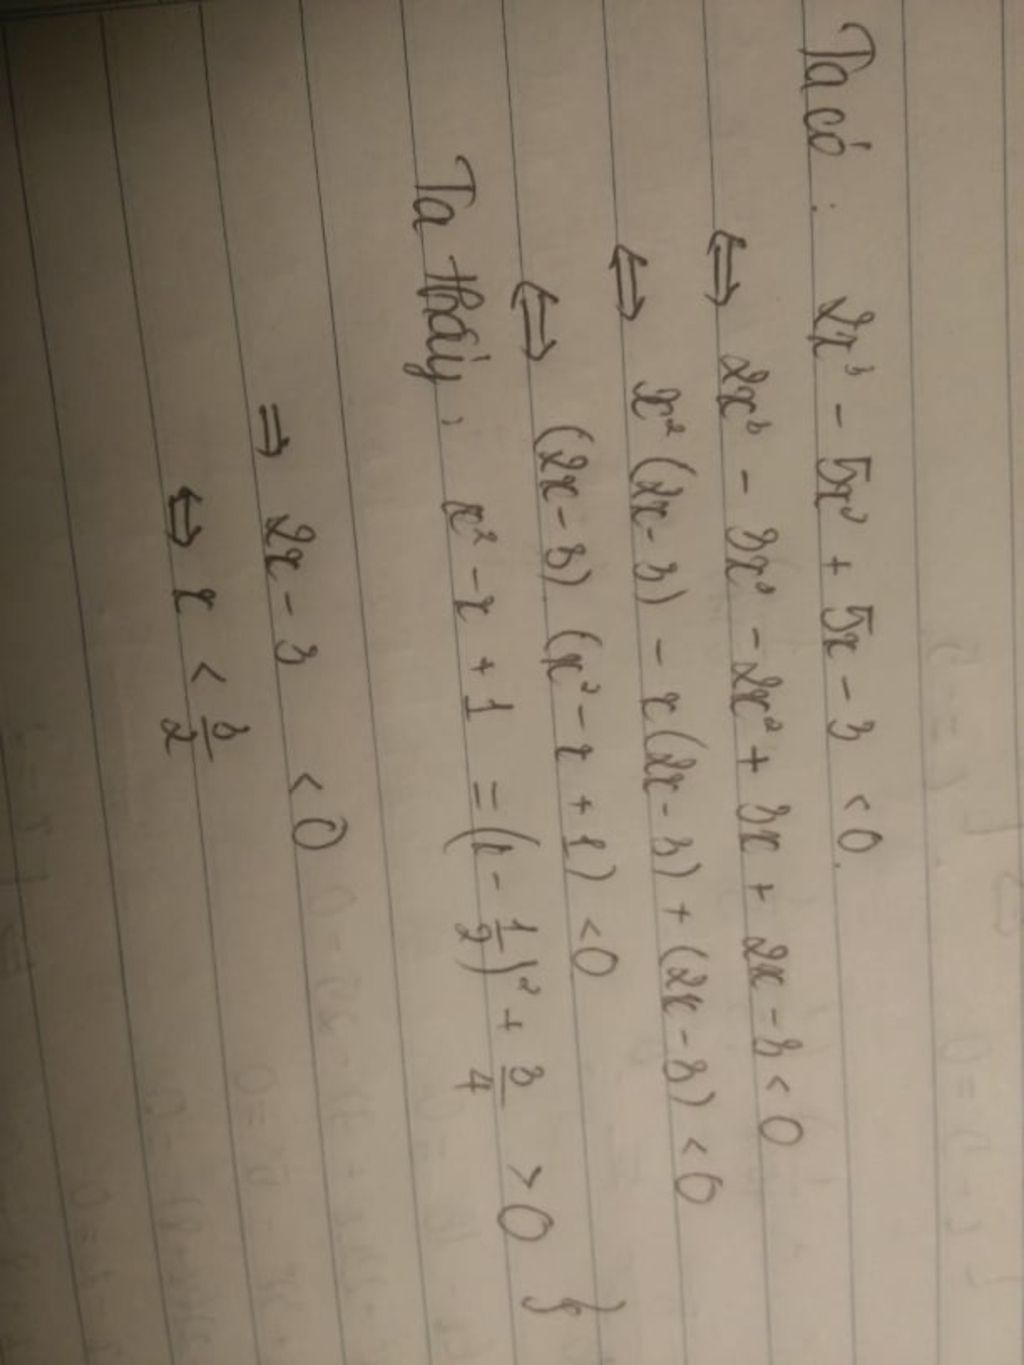 Ta có : 2x³ - 5x² + 5x - 3 < 0.
⇔ 2x³ - 3x² - 2x² + 3x + 2x - 3 < 0
⇔ x² (2x - 3) - x (2x - 3) + (2x - 3) < 0
⇔ (2x - 3) (x² - x + 1) < 0
Ta thấy : x² - x + 1 = (x - 1/2)² + 3/4 > 0 }
⇒ 2x - 3 < 0
⇔ x < 3/2